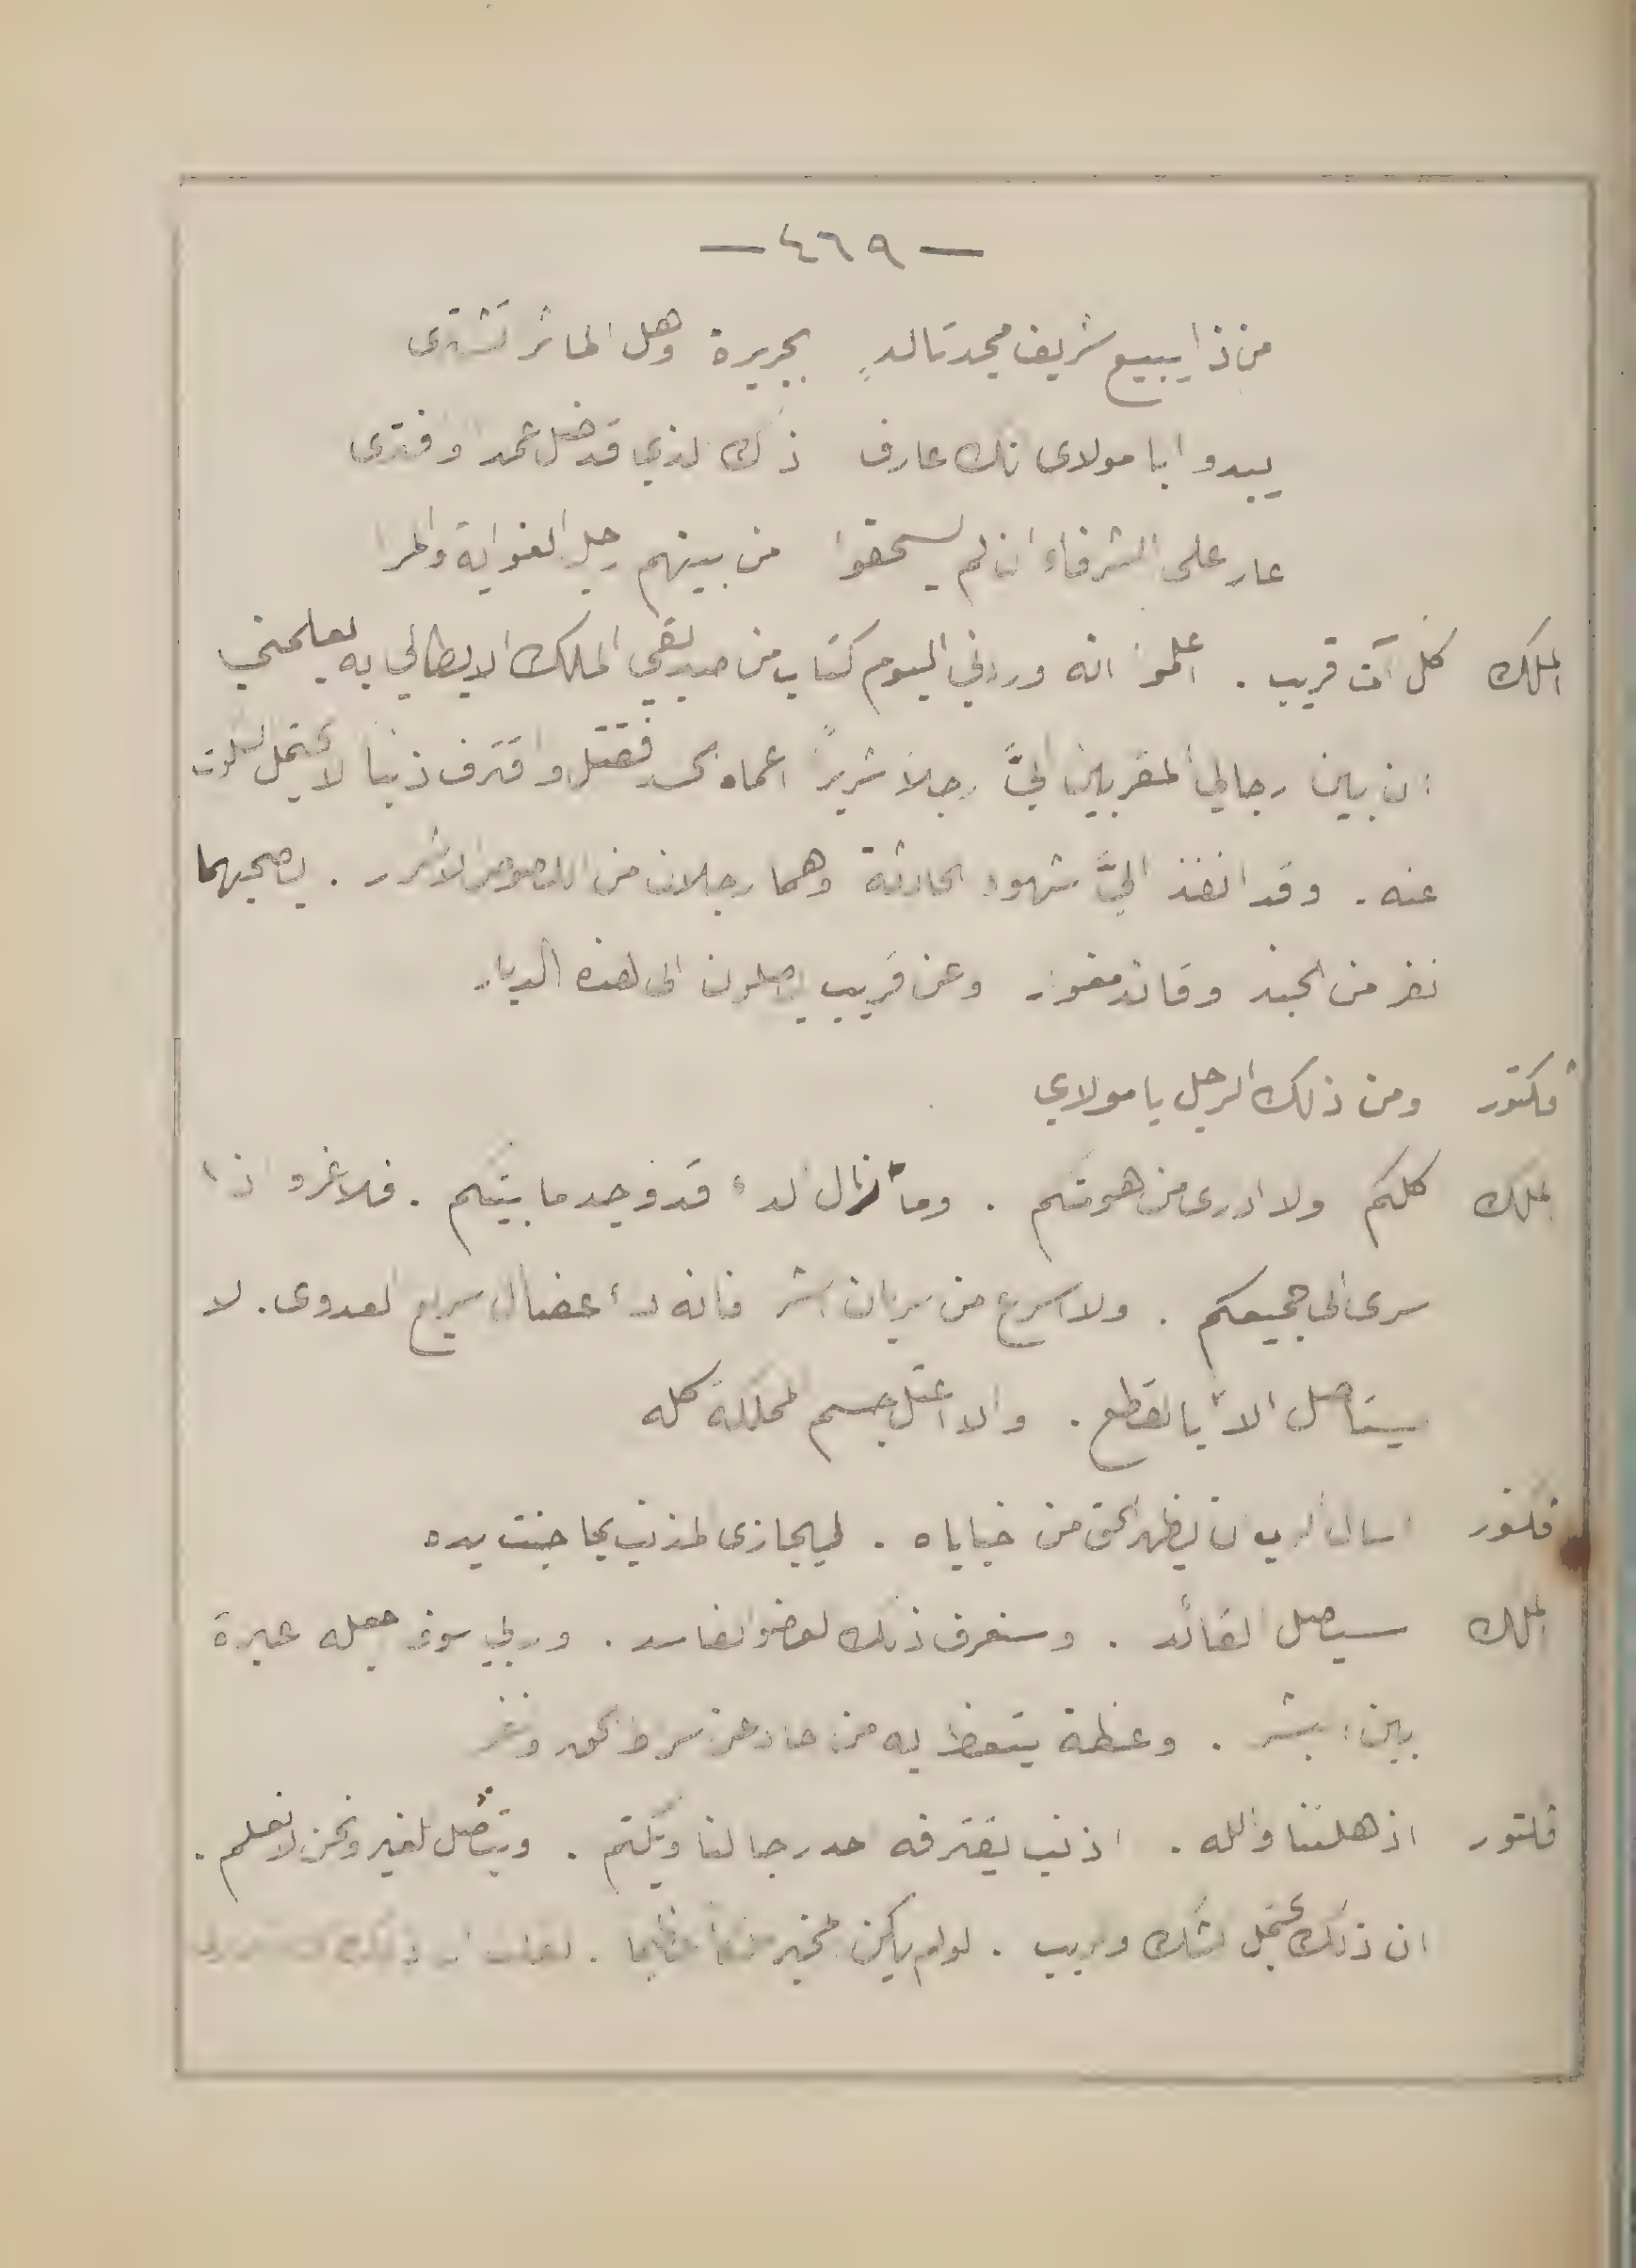 — ٤٦٩ —
من ذا يبيع شريف مجد تالدٍ بجريرة وهل المآثر تشترى
يبدو ايا مولاى انك عارف ذاك الذي قد ضل عمدا وافترى
عار على الشرفاء ان لم يسحقوا من بينهم رجل الغواية والمرا
الملك كل آت قريب . اعلموا انه وردني اليوم كتاب من صديقي الملك الايطالي به يعلمني
ان بين رجالي المقربين اليَّ رجلاً شريراً اعماه الحسد فقتل واقترف ذنبا لا يحتمل السكوت
عنه . وقد انفذ اليَّ شهود الحادثة وهما رجلان من اللصوص الاشرار . يصحبهما
نفر من الجند وقائد مغوار وعن قريب يصلون الى هذه الديار
فكتور ومن ذلك الرجل يا مولاي
الملك كلكم ولا ادرى من هو منكم . وما زال الداء قد وجد ما بينكم . فلا غرو اذا
سرى الى جميعكم . ولا اسرع من سريان الشر فانه داء عضال سريع العدوى . لا
يستأصل الاّ بالقطع . والا اعتل جسم المملكة كله
فكتور اسال الرب ان يظهر الحق من خباياه . ليجازى المذنب بما جنت يداه
الملك سيصل القائد . وسنعرف ذلك العضو الفاسد . وربي سوف اجعله عبرة
بين البشر . وعظة يتعظ به من حاد عن سراط الحق
فكتور اذهلتنا والله . اذنب يقترفه احد رجالنا ويكتم . ويتصل للغير ونحن لا نعلم .
ان ذلك يحتمل الشك والريب . لو لم يكن المخبر . لقلت ان ذلك